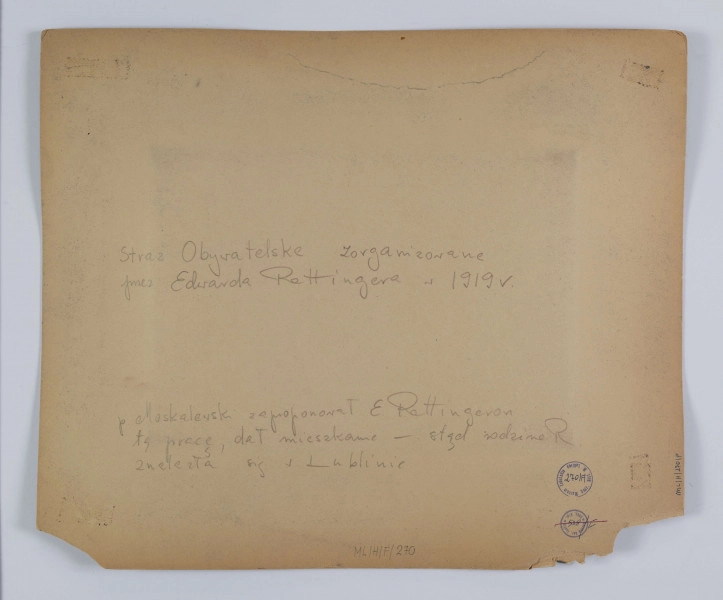 Straż Obywatelska zorganizowana
przez Edwarda Rettingera w 1919 r.
p Moskalewski zaproponował E Rettingerowi
tę pracę, dał mieszkanie – stąd rodzina R
znalazła się w Lublinie
270/H
ML/H/F/270
ML/H/270/F